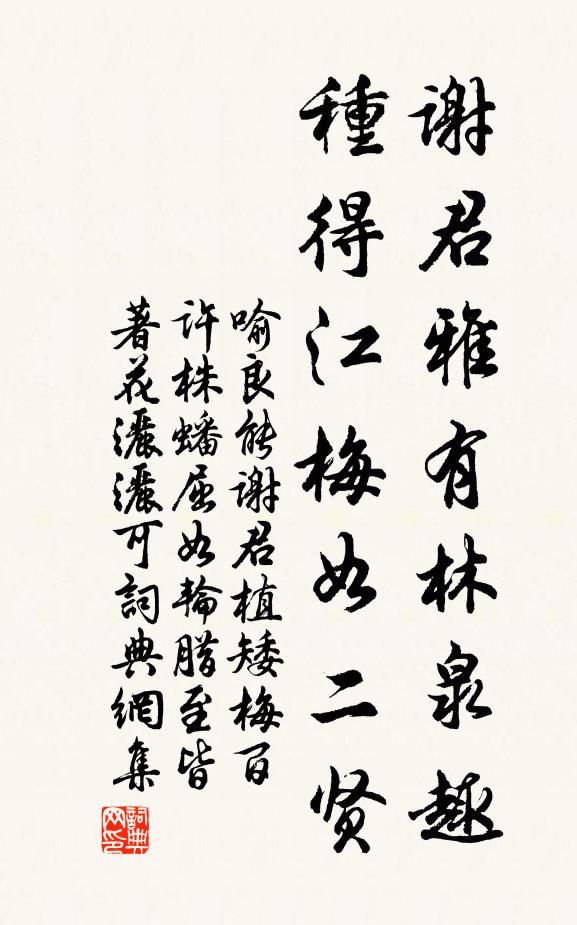 谢君雅有林泉趣
種得江梅如二贤
喻良能谢君植矮梅百
许株蟠屈如輪腊至皆
著花灑灑可詞典網集
詞典
网印